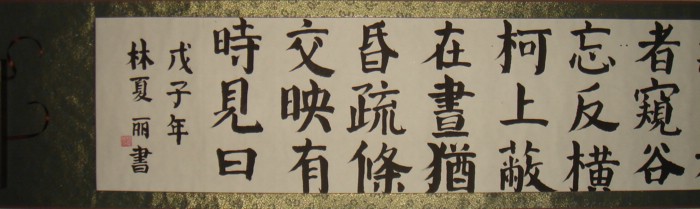 者窺谷
忘反橫
柯上蔽
在晝猶
昏疏條
交映有
時見日
戊子年
林夏丽書